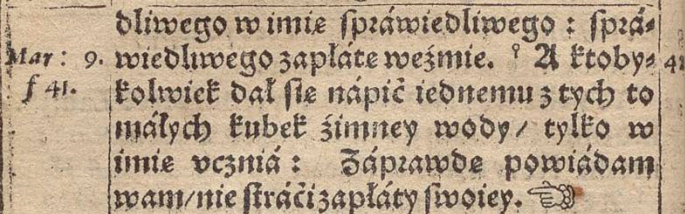 dliwego w imie spráwiedliwego : sprá⸗
Mar : 9. wiedliwego zapłáte weźmie. ꝰ A ktoby⸗ 41
f 41. kolwiek dał sie nápić iednemu z tych to
máłych kubek źimney wody / tylko w
imie vczniá : Záprawde powiádam
wam / nie stráći zapłáty swoiey. ☜